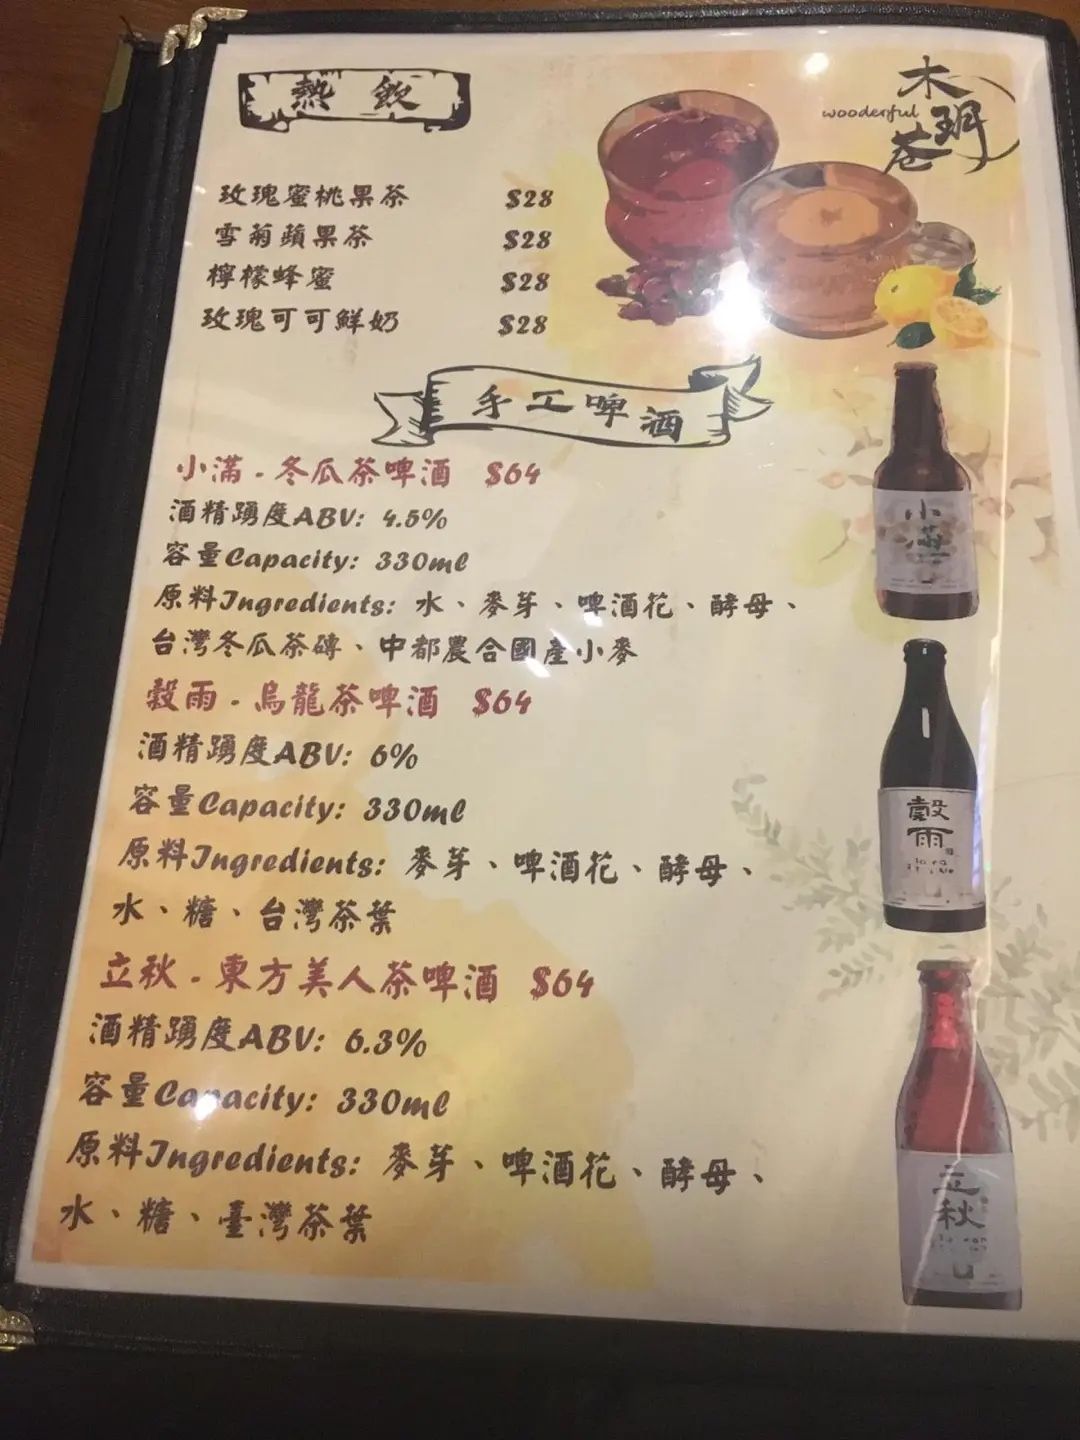 熱飲
木
wooderful
玥
苍
玫瑰蜜桃果茶 $28
雪菊蘋果茶 $28
檸檬蜂蜜 $28
玫瑰可可鮮奶 $28
手工啤酒
小滿 - 冬瓜茶啤酒 $64
酒精踴度ABV: 4.5%
容量Capacity: 330ml
原料Ingredients: 水、麥芽、啤酒花、酵母、
台灣冬瓜茶磚、中都農合國產小麥
穀雨 - 烏龍茶啤酒 $64
酒精踴度ABV: 6%
容量Capacity: 330ml
原料Ingredients: 麥芽、啤酒花、酵母、
水、糖、台灣茶葉
立秋 - 東方美人茶啤酒 $64
酒精踴度ABV: 6.3%
容量Capacity: 330ml
原料Ingredients: 麥芽、啤酒花、酵母、
水、糖、臺灣茶葉
小
滿
穀
雨
立
秋